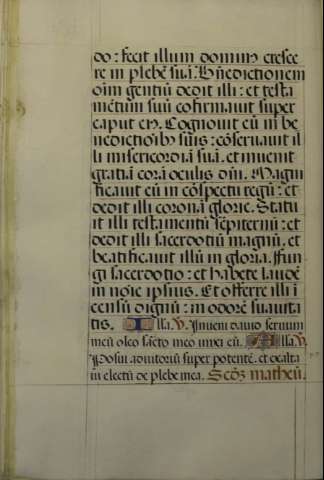 do: fecit illum dominꝰ cresce
re in plebē suā. Bn̄edictionem
oīm gentiū dedit illi: et testa
mētum suū cōfirmauit super
caput eiꝰ. Cognouit eū in be
nedictioībꝰ suis: cōseruauit il
li misericordiā suā: et inuenit
gratiā corā oculis dn̄i. Magni
ficauit eū in cōspectu regū: et
dedit illi coronā glorie. Statu
it illi testamentū sēpiternū: et
dedit illi sacerdotiū magnū, et
beatificauit illū in gloria. Fun
gi sacerdotio: et habere laudē
in noīe ipsius. Et offerre illi ī
censū dignū: in odorē suauita
tis. Alla. ℣. Inueni dauid seruum
meū oleo sācto meo unxi eū. Alla. ℣.
Posui adiutoriū super potentē. et exalta
ui electū de plebe mea. Scd̄ꝫ matheū.